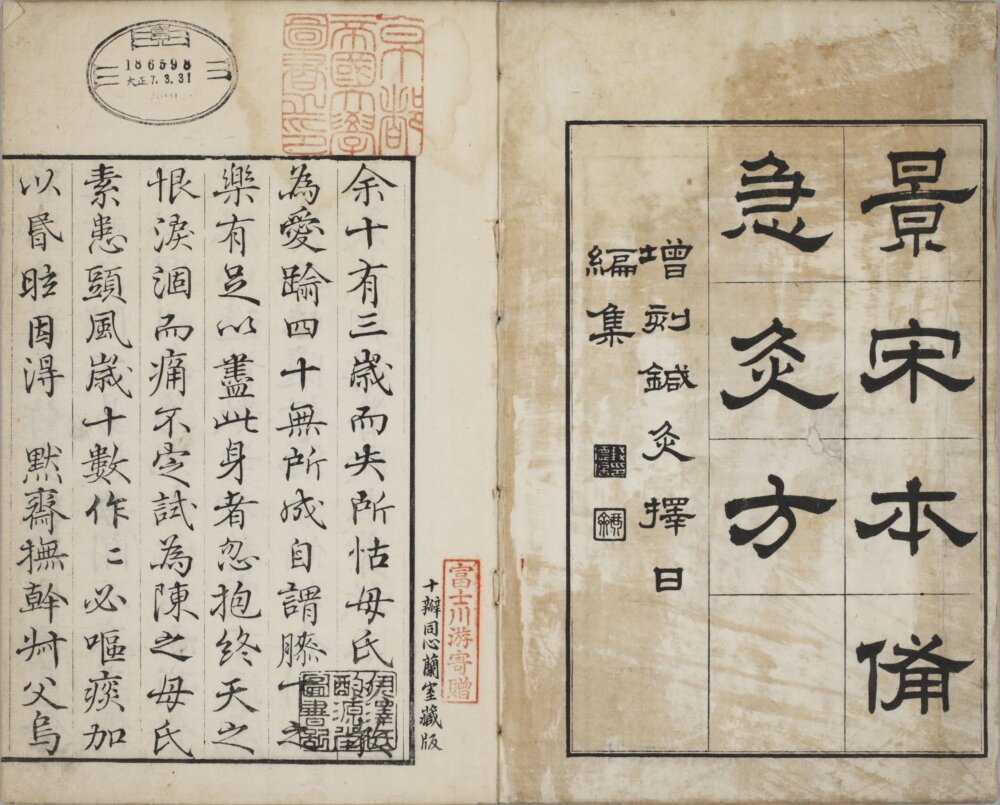 景宋本備
急灸方
增刻鍼灸擇日
編集
186598
大正7.3.31
京都
帝國大學
圖書之印
余十有三歲而失所怙母氏
為愛踰四十無所成自謂膝下之
樂有足以盡此身者忽抱終天之
恨淚涸而痛不定試為陳之母氏
素患頭風歲十數作〻必嘔痰加
以昬眩因得 默齋撫幹叔父烏
富士川游寄贈
十瓣同心蘭室藏版
伊澤氏
酌源堂
圖書記